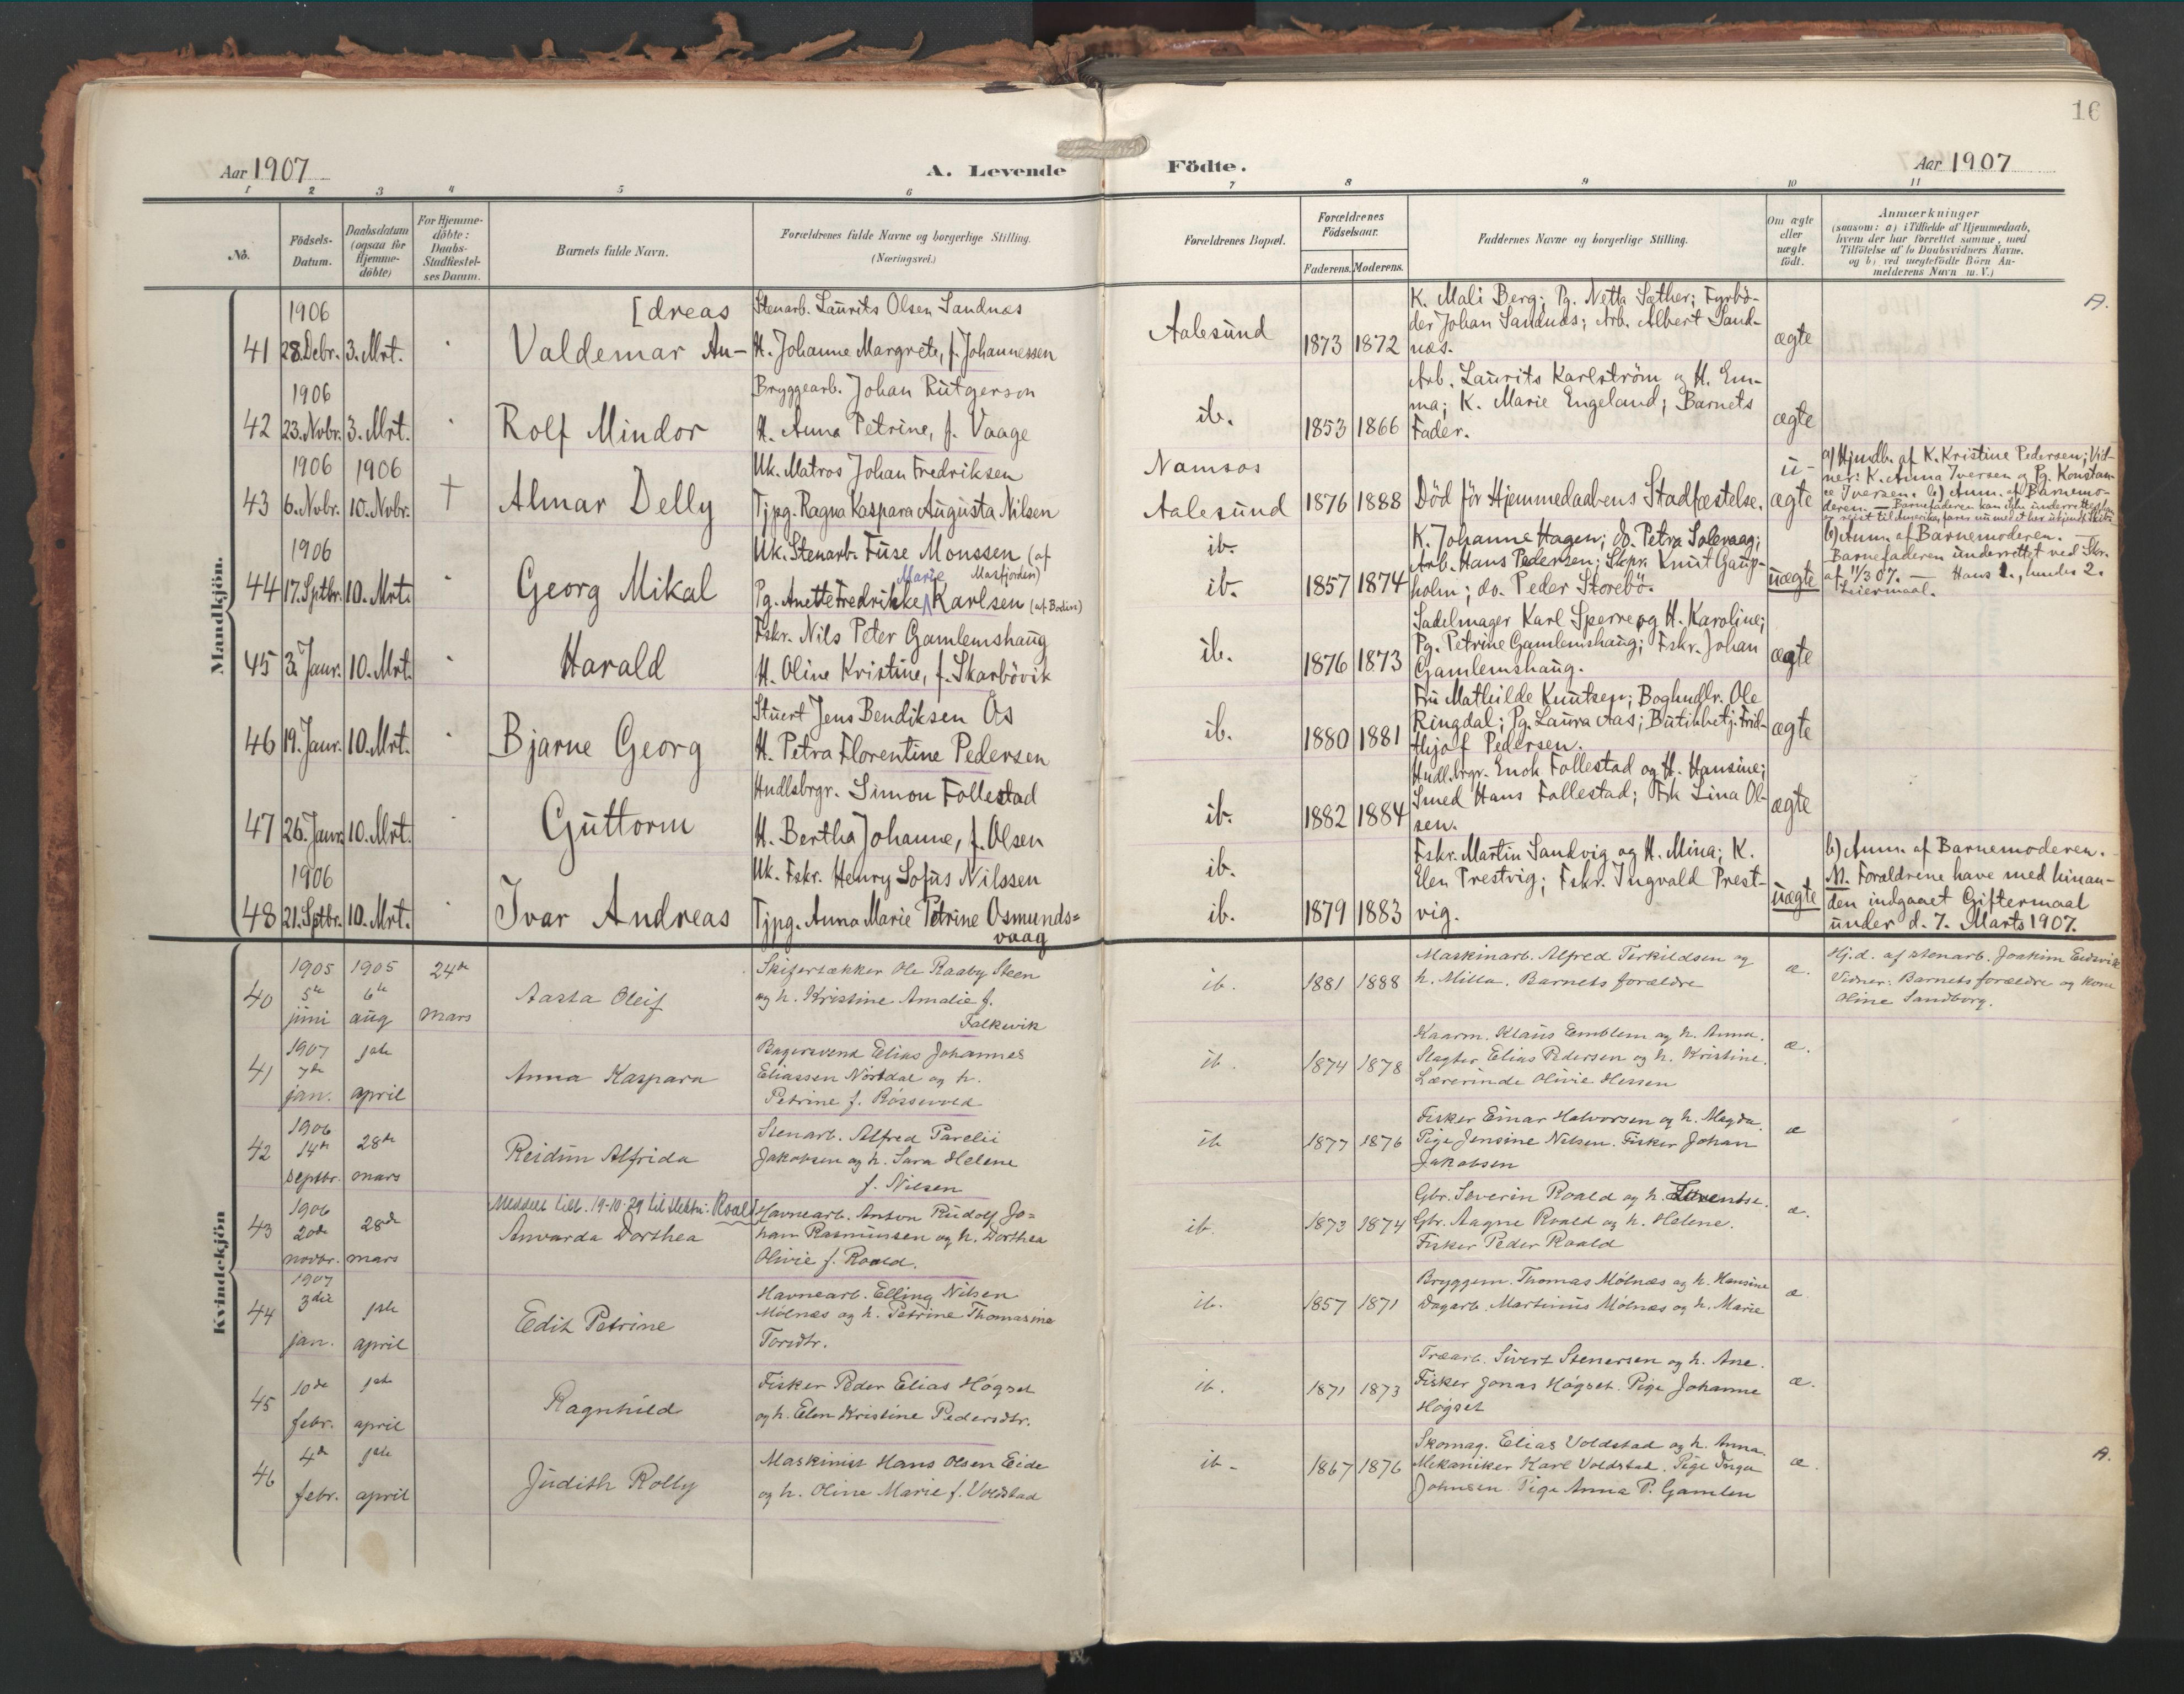 16
Aar 1907
A. Levende
Födte.
Aar 1907
1 2 3 4 5 6 7 8 9 10 11
No.
Födsels-
Datum.
Daabsdatum
(ogsaa for
Hjemme-
döbte)
For Hjemme-
döbte:
Daabs-
Stadfæstel-
ses Datum.
Barnets fulde Navn.
Forældrenes fulde Navne og borgerlige Stilling.
(Næringsvei.)
Forældrenes Bopæl.
Forældrenes
Födselsaar.
Faderens. Moderens.
Faddernes Navne og borgerlige Stilling.
Om ægte
eller
uægte
født.
Anmærkninger
(saasom: a) i Tilfælde af Hjemmedaab,
hvem der har forrettet samme, med
Tilföielse af to Daabsvidners Navne.
og b) ved uægtefödte Börn An-
melderens Navn m. V.)
Mandkjön.
41
1906
28. Debr.
3. Mrt.
[dreas
Valdemar An-
Stenarb. Laurits Olsen Sandnæs
H. Johanne Margrete, f. Johannessen
Aalesund
1873 1872
K. Mali Berg; Pg. Netta Sæther; Fyrbö-
der Johan Sandnæs; Arb. Albert Sand-
næs.
ægte
A.
42
1906
23. Novbr.
3. Mrt.
Rolf Mindor
Bryggearb. Johan Rutgerson
H. Anna Petrine, f. Vaage
ib.
1853 1866
Arb. Laurits Karlström og H. Em-
ma; K. Marie Engeland; Barnets
Fader.
ægte
43
1906
6. Novbr.
1906
10. Novbr.
†
Almar Delly
Uk. Matros Johan Fredriksen
Tjpg. Ragna Kaspara Augusta Nilsen
Namsos
Aalesund
1876 1888
Död för Hjemmedaabens Stadfæstelse.
u-
ægte
a) Hjmdb. af K. Kristine Pedersen; Vid-
ner: K. Anna Iversen og Pg. Konstan-
ce Iversen. b) Anm. af Barnemo-
deren. — Barnefaderen kan ikke underrettes
44
1906
17. Sptbr.
10. Mrt.
Georg Mikal
Uk. Stenarb. Fuse Monssen (af
Masfjorden)
Marie
Pg. Anette Fredrikke Karlsen (af Bodin)
ib.
ib.
1857 1874
K. Johanne Hagen; do. Petra Solevaag;
Arb. Hans Pedersen; Skpr. Knut Gaup-
holm; do. Peder Storebö.
uægte
b) Anm. af Barnemoderen. —
Barnefaderen underrettet ved Skr.
af 11/3 07. — Hans 1., hendes 2.
Leiermaal.
45
3. Janr.
10. Mrt.
Harald
Fskr. Nils Peter Gamlemshaug
H. Oline Kristine, f. Skarbövik
ib.
1876 1873
Sadelmager Karl Sperre og H. Karoline;
Pg. Petrine Gamlemshaug; Fskr. Johan
Gamlemshaug.
ægte
46
19. Janr.
10. Mrt.
Bjarne Georg
Stuert Jens Bendiksen Os
H. Petra Florentine Pedersen
ib.
1880 1881
Fru Mathilde Knutsen; Boghndlr. Ole
Ringdal; Pg. Laura Aas; Butikbetj. Frid-
thjof Pedersen.
ægte
47
26. Janr.
10. Mrt.
Guttorm
Hndlsbrgr. Simon Follestad
H. Bertha Johanne, f. Olsen
ib.
1882 1884
Hndlsbrgr. Enok Follestad og H. Hansine;
Smed Hans Follestad; Frk Lina Ol-
sen.
ægte
48
1906
21. Sptbr.
10. Mrt.
Ivar Andreas
Uk. Fskr. Henry Sofus Nilssen
Tjpg. Anna Marie Petrine Osmunds=
vaag
ib.
ib.
1879 1883
Fskr. Martin Sandvig og H. Mina; K.
Elen Prestvig; Fskr. Ingvald Prest-
vig.
uægte
b) Anm. af Barnemoderen.
N. Forældrene have med hinan-
den indgaaet Giftermaal
under d. 7. Marts 1907.
Kvindekjön
40
1905
5te
juni
1905
6te
aug
24de
mars
Aasta Oleif
Skifertækker Ole Raaby Steen
og h. Kristine Amalie f.
Falkevik
ib.
1881 1888
Maskinarb. Alfred Terkildsen og
h. Milla. Barnets forældre
æ.
Hj.d. af stenarb. Joakim Eidsvik
Vidner: Barnets forældre og kone
Oline Sandborg.
41
1907
7de
jan.
1ste
april
Anna Kaspara
Bagersvend Elias Johannes
Eliassen Nordal og h.
Petrine f. Røssevold
ib.
1874 1878
Kaarm. Klaus Emblem og h. Anna.
Slagter Elias Pedersen og h. Kristine.
Lærerinde Olivie Hessen
æ.
42
1906
14de
septbr.
28de
mars
Reidun Alfrida
Stenarb. Alfred Parelii
Jakobsen og h. Sara Helene
f. Nilsen
ib
1877 1876
Fisker Einar Halvorsen og h. Magda.
Pige Jensine Nilsen. Fisker Johan
Jakobsen
æ
43
1906
20de
novbr.
28de
mars
Meddelt till. 19-10-29 til slektn: Roald
Anvarda Dorthea
Havnearb. Anton Rudolf Jo=
han Rasmussen og h. Dorthea
Olivie f. Roald.
ib.
1873 1874
Gbr. Severin Roald og h. Laurentse.
Gbr. Aagne Roald og h. Helene.
Fisker Peder Roald
æ.
44
1907
3die
jan.
1ste
april
Edit Petrine
Havnearb. Elling Nilsen
Mølnæs og h. Petrine Thomasine
Torsdtr.
ib.
1857 1871
Bryggem. Thomas Mølnæs og h. Hansine
Dagarb. Martinus Mølnæs og h. Marie
æ
45
10de
febr.
1ste
april
Ragnhild
Fisker Peder Elias Høgset
og h. Elen Kristine Pedersdtr.
ib.
1871 1873
Træarb. Sivert Stenersen og h. Ane.
Fisker Jonas Høgset. Pige Johanne
Høgset
æ.
46
4de
febr.
1ste
april
Judith Rolly
Maskinist Hans Olsen Eide
og h. Oline Marie f. Voldstad
ib-
1867 1876
Skomag. Elias Voldstad og h. Anna.
Mekaniker Karl Voldstad. Pige Inga
Johnsen Pige Anna P. Gamlem
æ.
A.